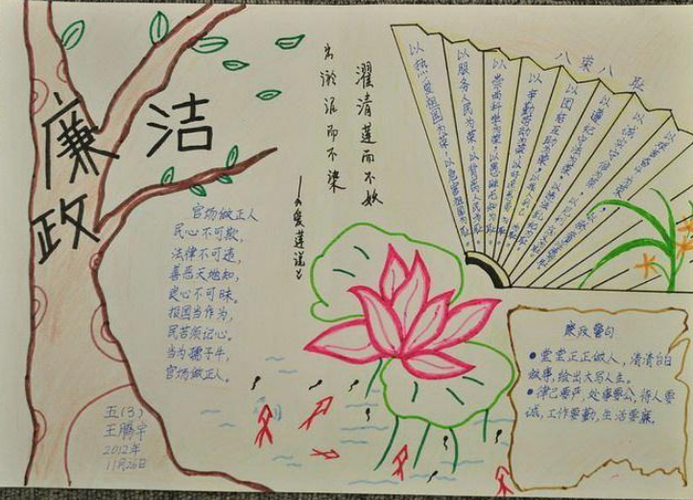 廉洁
政
出淤泥而不染
濯清莲而不妖
——《爱莲说》
八荣八耻
以热爱祖国为荣,以危害祖国为耻。
以服务人民为荣,以背离人民为耻。
以崇尚科学为荣,以愚昧无知为耻。
以辛勤劳动为荣
以团结互助为荣
以遵纪守法为荣
以诚实守信为荣
以艰苦奋斗为荣
官场做正人
民心不可欺,
法律不可违,
善恶天地知,
良心不可昧。
报国当作为,
民苦须记心。
当为孺子牛,
官场做正人。
五(3)
王腾宇
2012年
11月26日
廉政警句
●堂堂正正做人,清清白白
做事,绘出大写人生。
●律己要严,处事要公,待人要
诚,工作要勤,生活要廉。